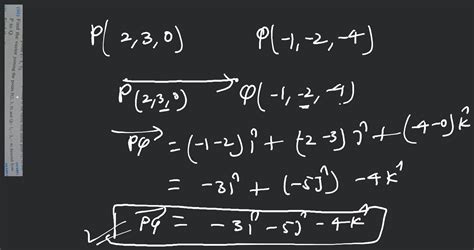 P(2,3,0) Q(-1,-2,-4)
P(2,3,0) Q(-1,-2,-4)
PQ⃗ = (-1-2)î + (-2-3)ĵ + (-4-0)k̂
= -3î + (-5ĵ) -4k̂
PQ⃗ = -3î -5ĵ -4k̂